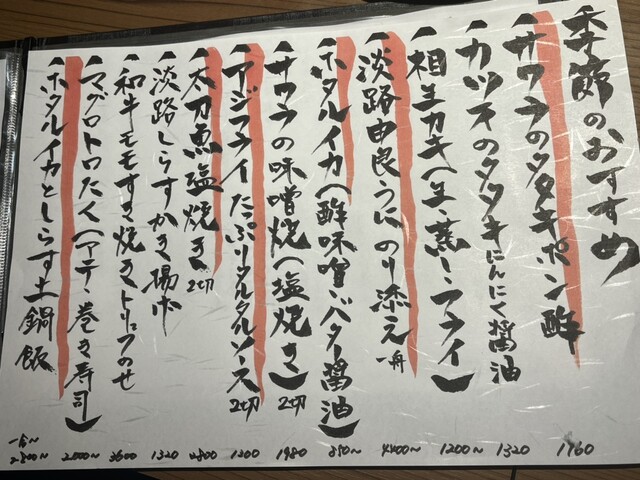 季節のおすすめ
サワラのタタキポン酢 1760
カツオのタタキにんにく醤油 1320
相生カキ(生・蒸し・フライ) 1200〜
淡路由良うに のり添え 一舟 4400〜
ホタルイカ(酢味噌・バター醤油) 890〜
サワラの味噌焼(塩焼き) 2切 1980
アジフライ たっぷりタルタルソース 2切 1200
太刀魚塩焼き 2切
淡路しらすかき揚げ 1320
和牛モモすき焼きトリュフのせ 3600
マグロトロたく(アテ・巻き寿司) 2000〜
ホタルイカとしらす土鍋飯 一合〜